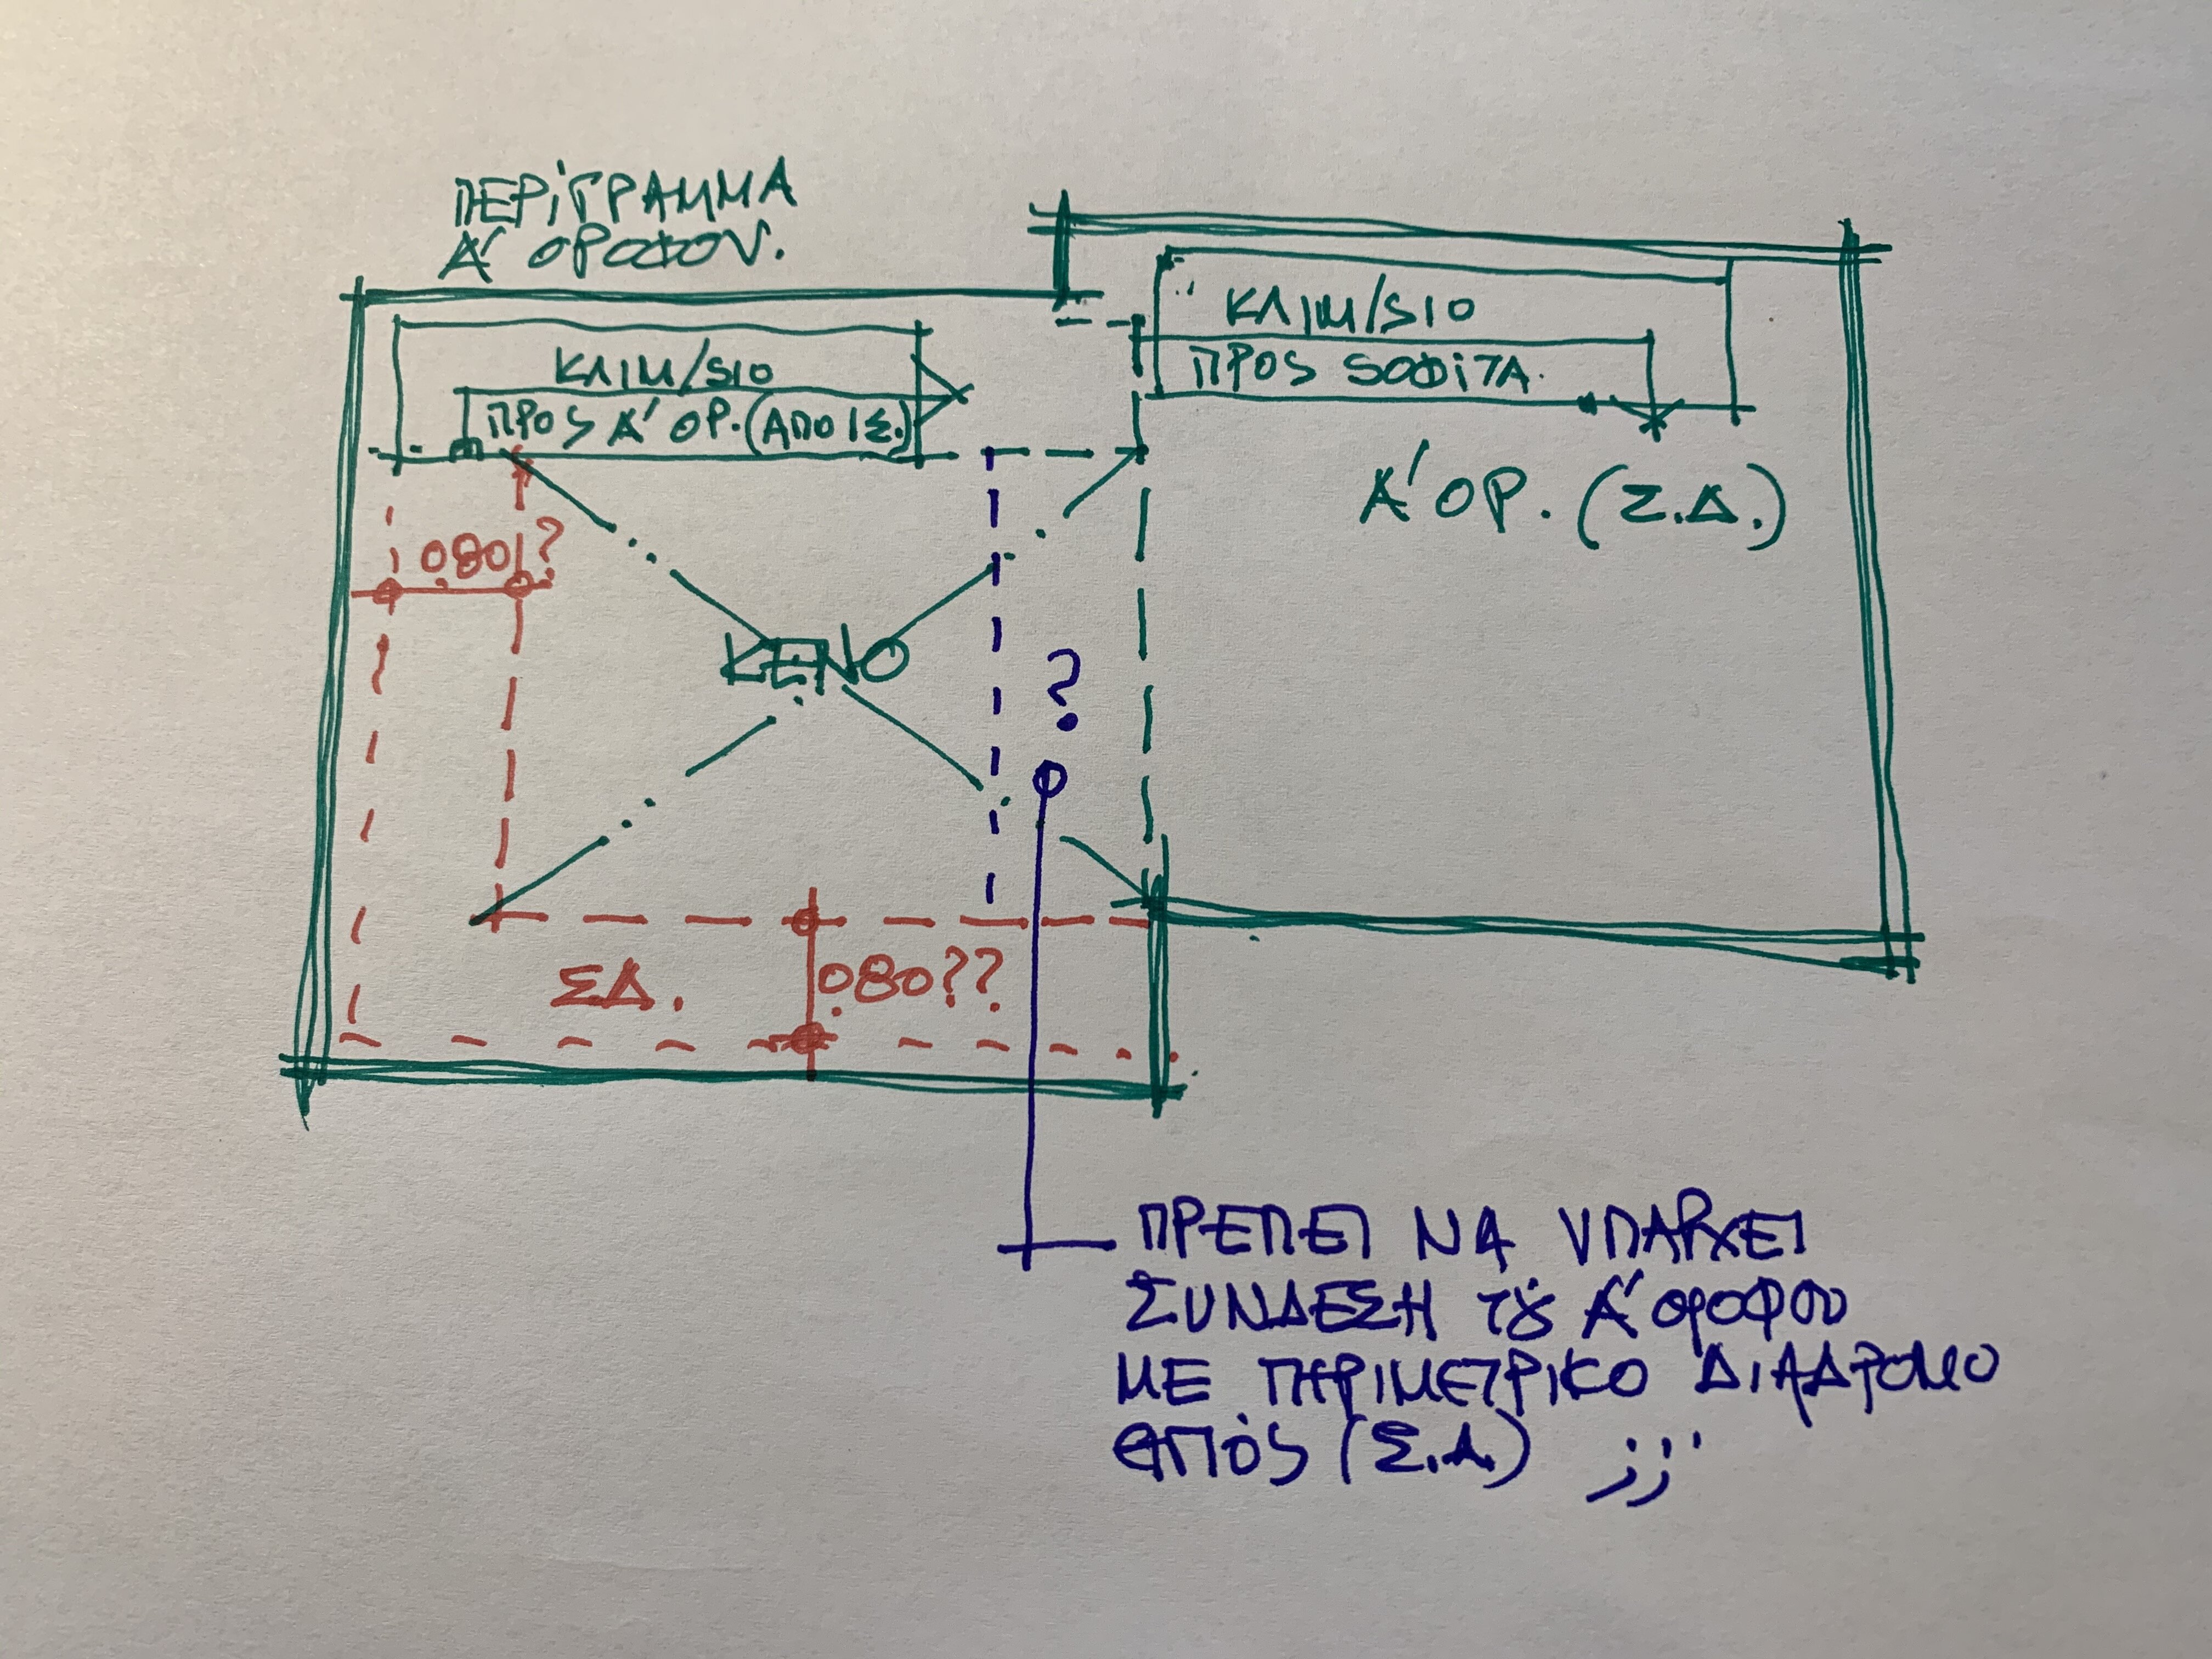 ΠΕΡίΓΡΑΜΜΑ
Α' ΟΡΟΦΟΥ.
ΚΛΙΜ/SΙΟ
ΠΡΟS Α' ΟΡ. (ΑΠΟ ΙΣ.)
ΚΛΙΜ/SΙΟ
ΠΡΟS SΟΦίΤΑ.
Α' ΟΡ. (Σ.Δ.)
0.80?
ΚΕΝΟ
?
ΣΔ.
0.80??
ΠΡΕΠΕΙ ΝΑ ΥΠΑΡΧΕΙ
ΣΥΝΔΕΣΗ τȣ Α' οροφου
ΜΕ ΠΕΡΙΜΕΤΡΙΚΟ ΔΙΑΔΡΟΜΟ
(Σ.Δ.) ;;